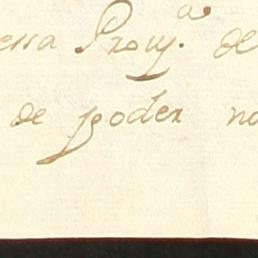 essa Prov.ª de
de poder no